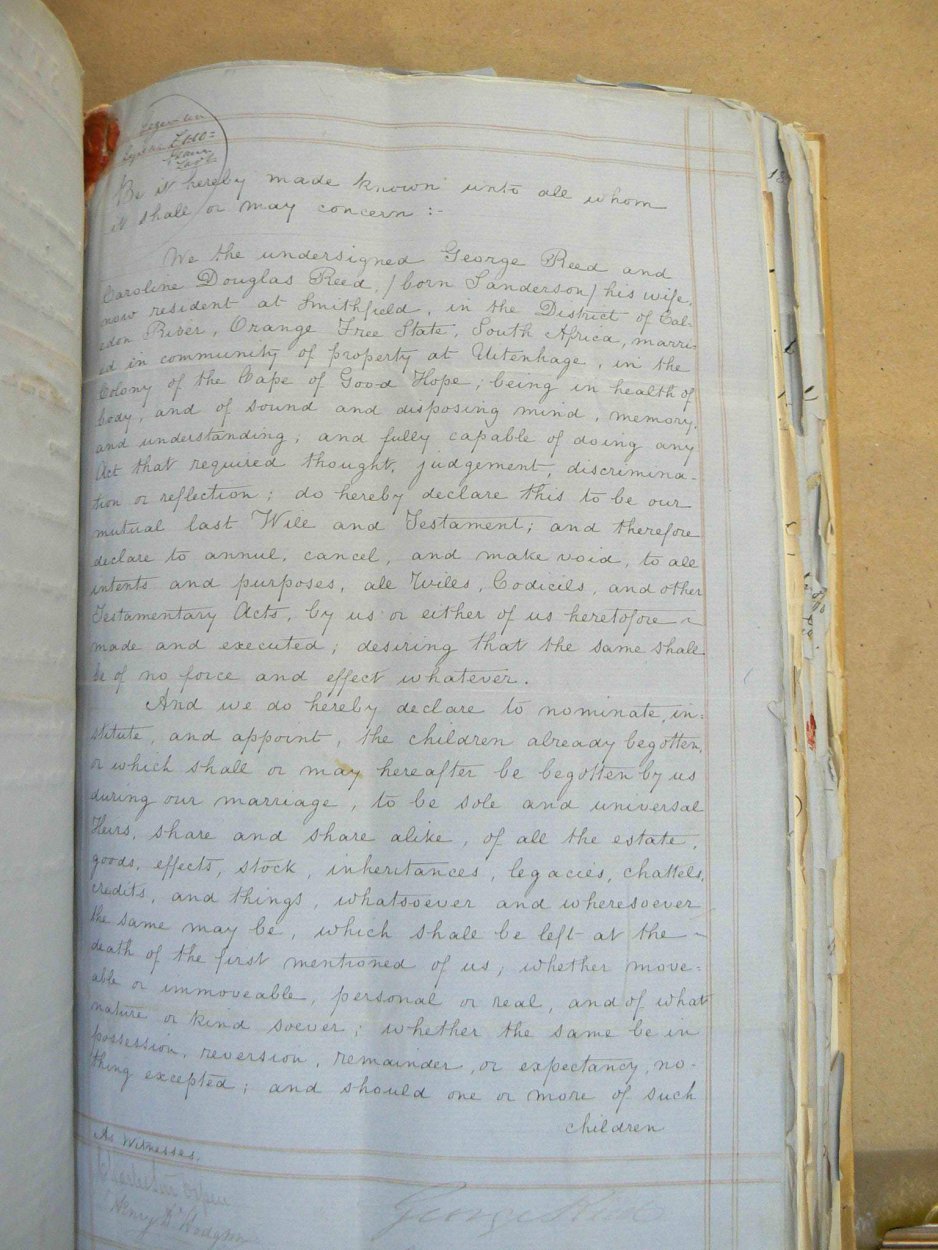 Be it hereby made known unto all whom
it shall or may concern :-
We the undersigned George Reed and
Caroline Douglas Reed, / born Sanderson / his wife,
now resident at Smithfield, in the District of Cal-
edon River, Orange Free State, South Africa, marri-
ed in community of property at Uitenhage, in the
Colony of the Cape of Good Hope; being in health of
body, and of sound and disposing mind, memory,
and understanding; and fully capable of doing any
Act that required thought, judgement, discrimina-
tion or reflection; do hereby declare this to be our
mutual last Will and Testament; and therefore
declare to annul, cancel, and make void, to all
intents and purposes, all Wills, Codicils, and other
Testamentary Acts, by us or either of us heretofore ~
made and executed; desiring that the same shall
be of no force and effect whatever.
And we do hereby declare to nominate, in:
stitute, and appoint, the children already begotten,
or which shall or may hereafter be begotten by us
during our marriage, to be sole and universal
Heirs, share and share alike, of all the estate,
goods, effects, stock, inheritances, legacies, chattels,
credits, and things, whatsoever and wheresoever
the same may be, which shall be left at the ~
death of the first mentioned of us; whether move:
able or immoveable, personal or real, and of what
nature or kind soever; whether the same be in
possession, reversion, remainder, or expectancy, no-
thing excepted; and should one or more of such
children
As Witnesses.
George Reed